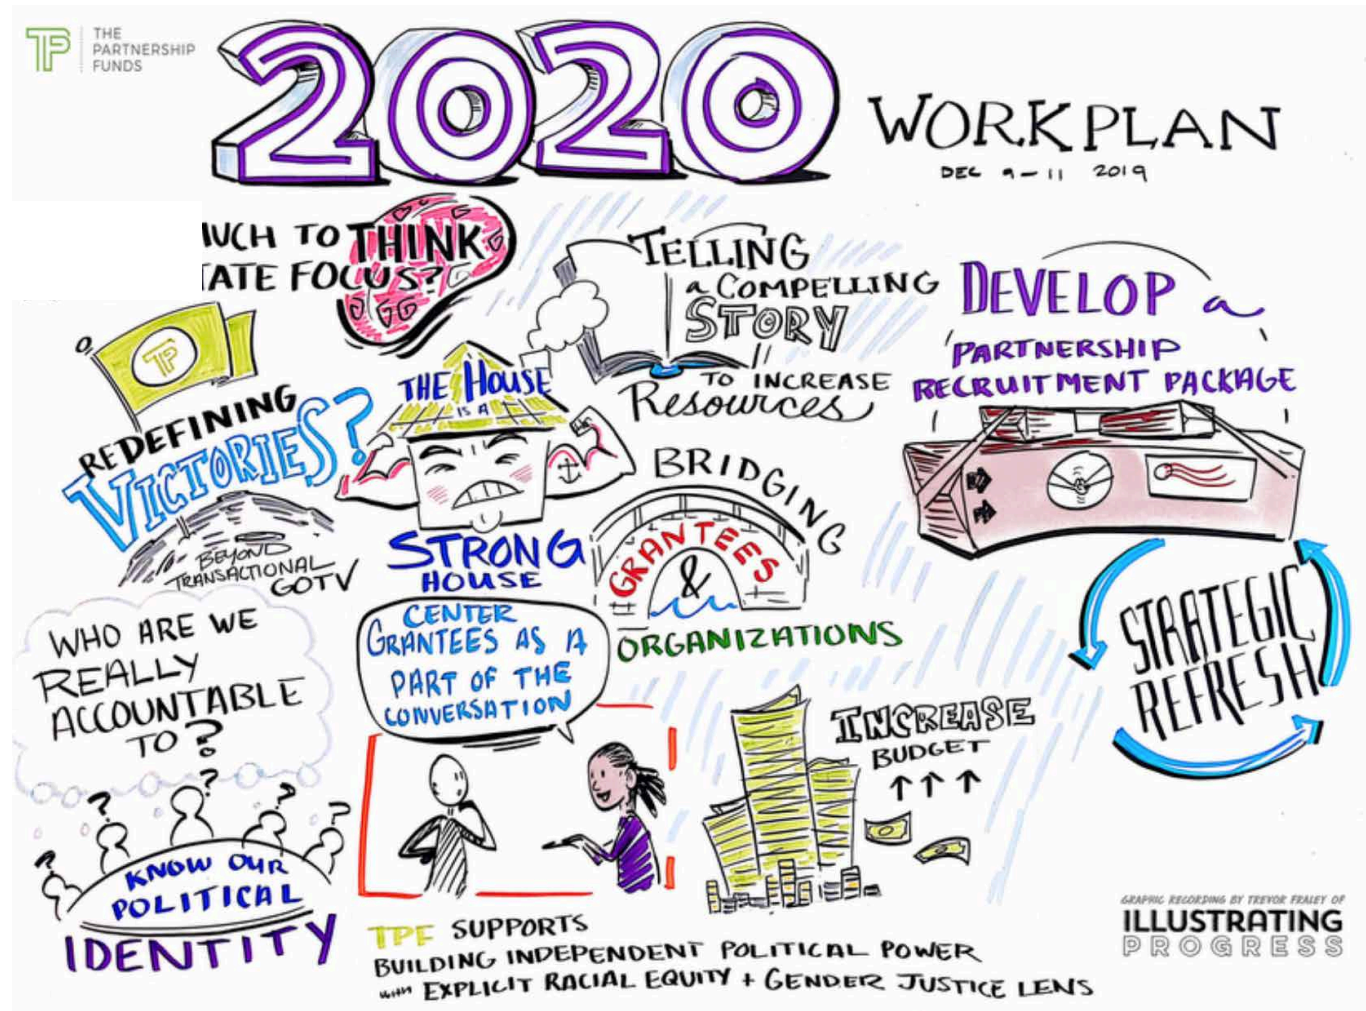 TP
THE
PARTNERSHIP
FUNDS
2020
WORKPLAN
DEC 9-11 2019
TO THINK
FOCUS?
TELLING
a COMPELLING
STORY
TO INCREASE
Resources
DEVELOP a
PARTNERSHIP
RECRUITMENT PACKAGE
TP
REDEFINING
VICTORIES?
BEYOND
TRANSACTIONAL
GOTV
THE HOUSE
IS A
STRONG
HOUSE
BRIDGING
GRANTEES
&
ORGANIZATIONS
STRATEGIC
REFRESH
WHO ARE WE
REALLY
ACCOUNTABLE
TO?
CENTER
GRANTEES AS A
PART OF THE
CONVERSATION
INCREASE
BUDGET
? ? ? ? ?
KNOW OUR
POLITICAL
IDENTITY
TPF SUPPORTS
BUILDING INDEPENDENT POLITICAL POWER
with EXPLICIT RACIAL EQUITY + GENDER JUSTICE LENS
GRAPHIC RECORDING BY TREVOR FRALEY OF
ILLUSTRATING
PROGRESS